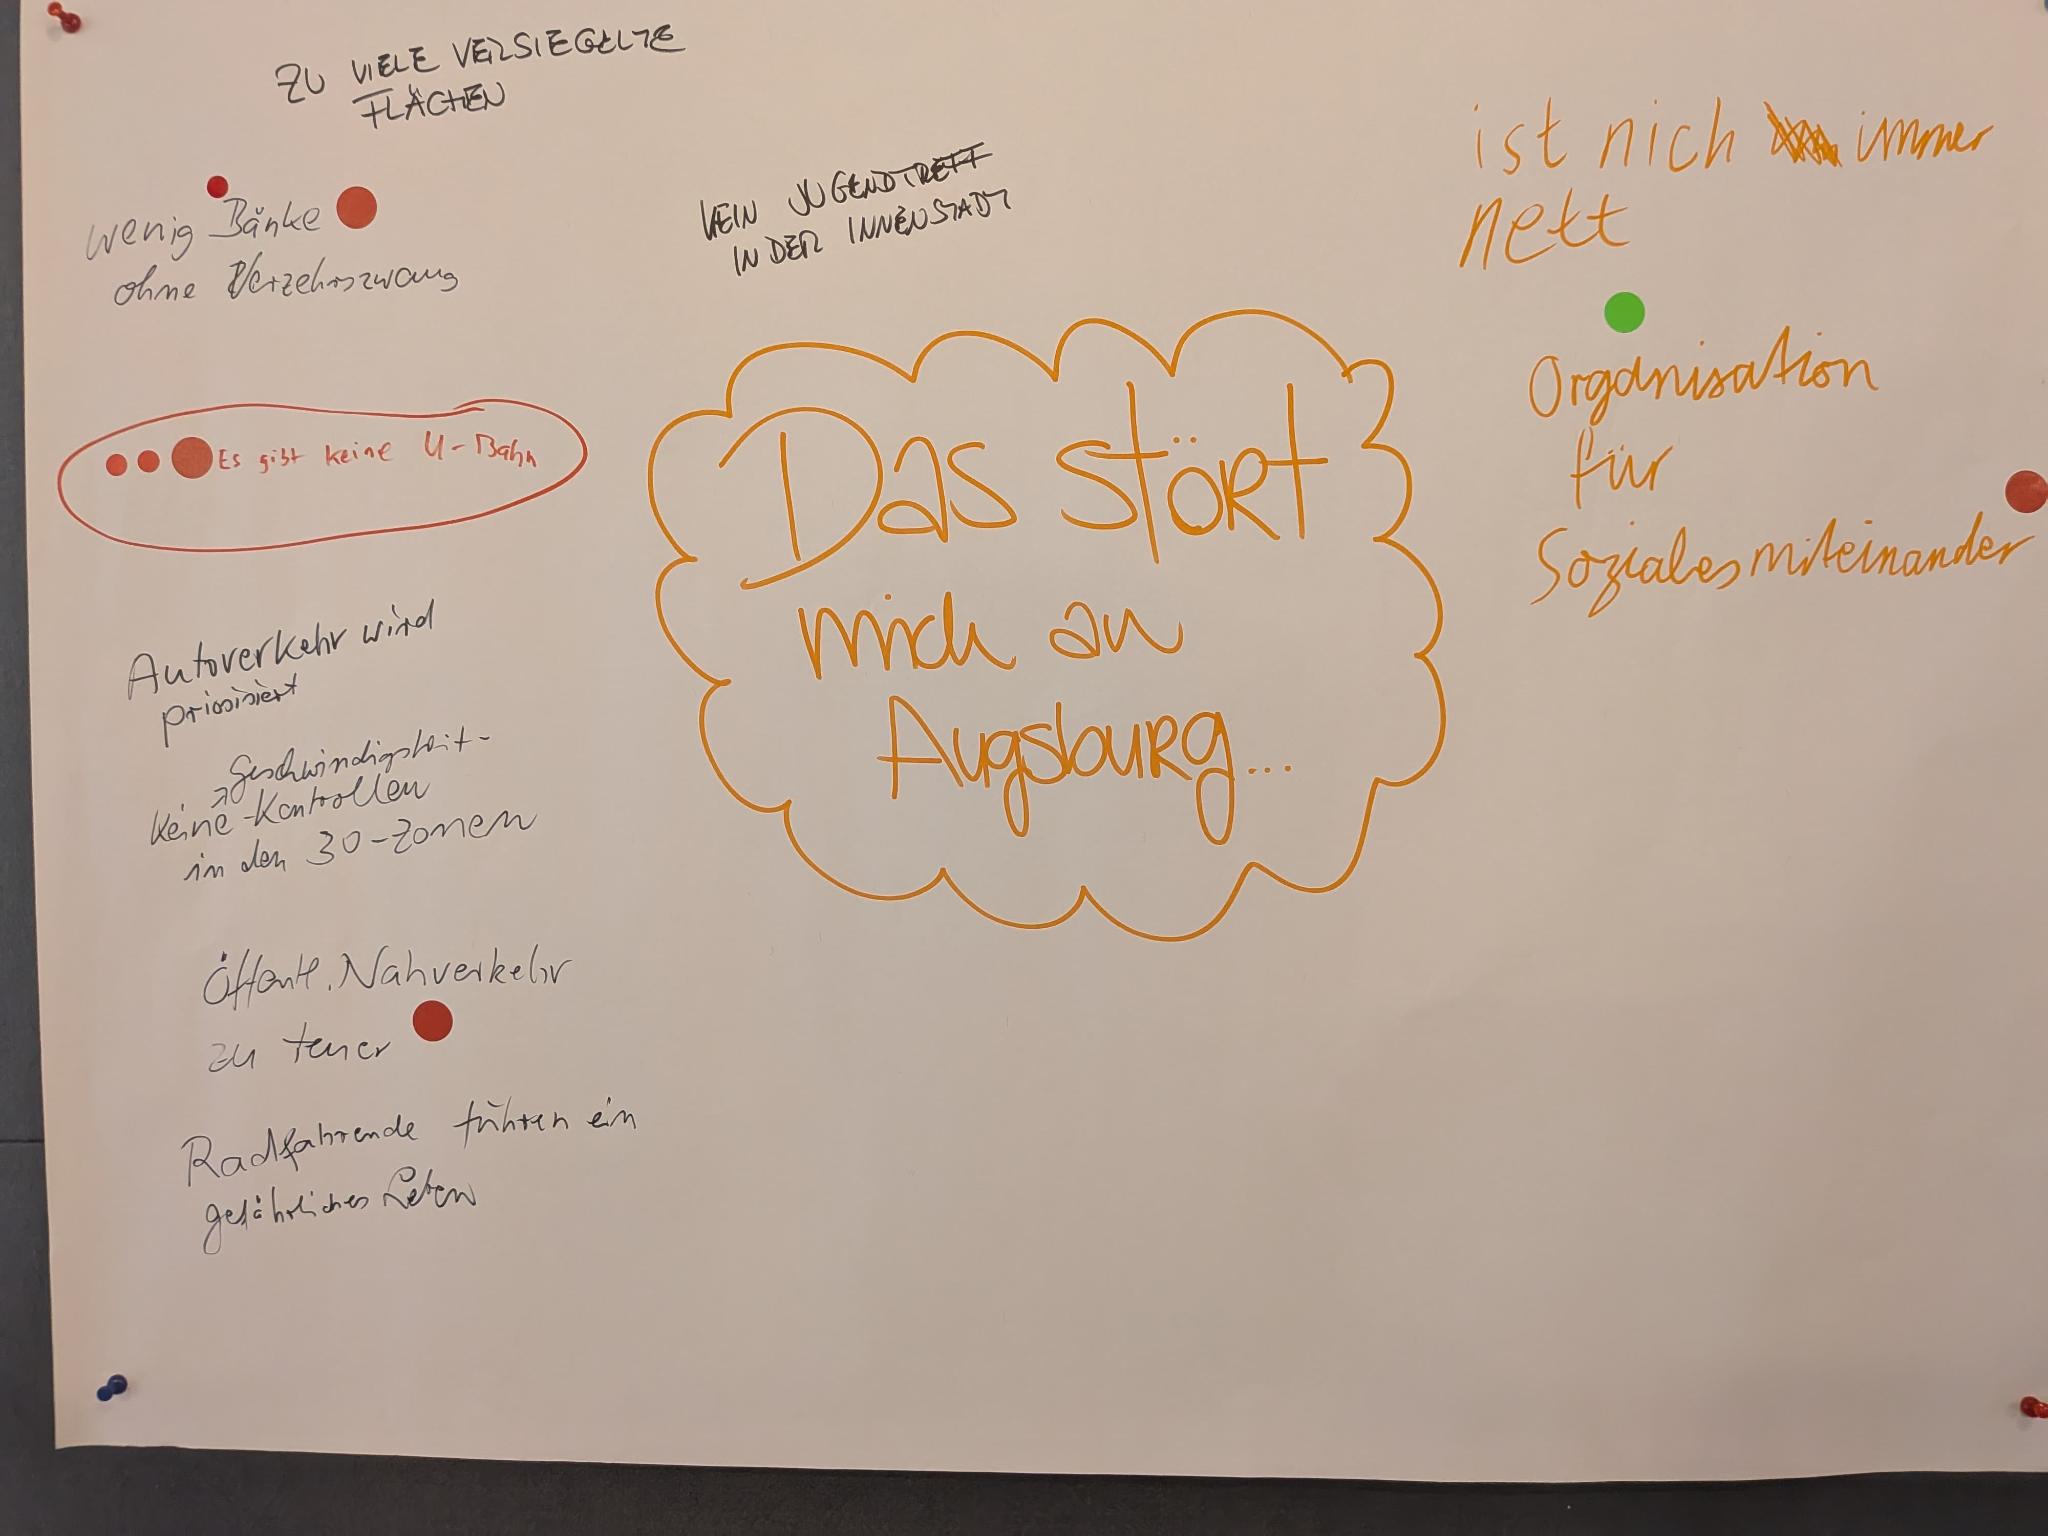 ZU VIELE VERSIEGELTE
FLÄCHEN
wenig Bänke
ohne Verzehrszwang
Es gibt keine U-Bahn
Autoverkehr wird
priorisiert
Geschwindigkeit-
keine -Kontrollen
in den 30-Zonen
Öffentl. Nahverkehr
zu teuer
Radfahrende führen ein
gefährliches Leben
KEIN JUGENDTREFF
IN DER INNENSTADT
Das stört
mich an
Augsburg...
ist nich immer
nett
Organisation
für
Soziales miteinander